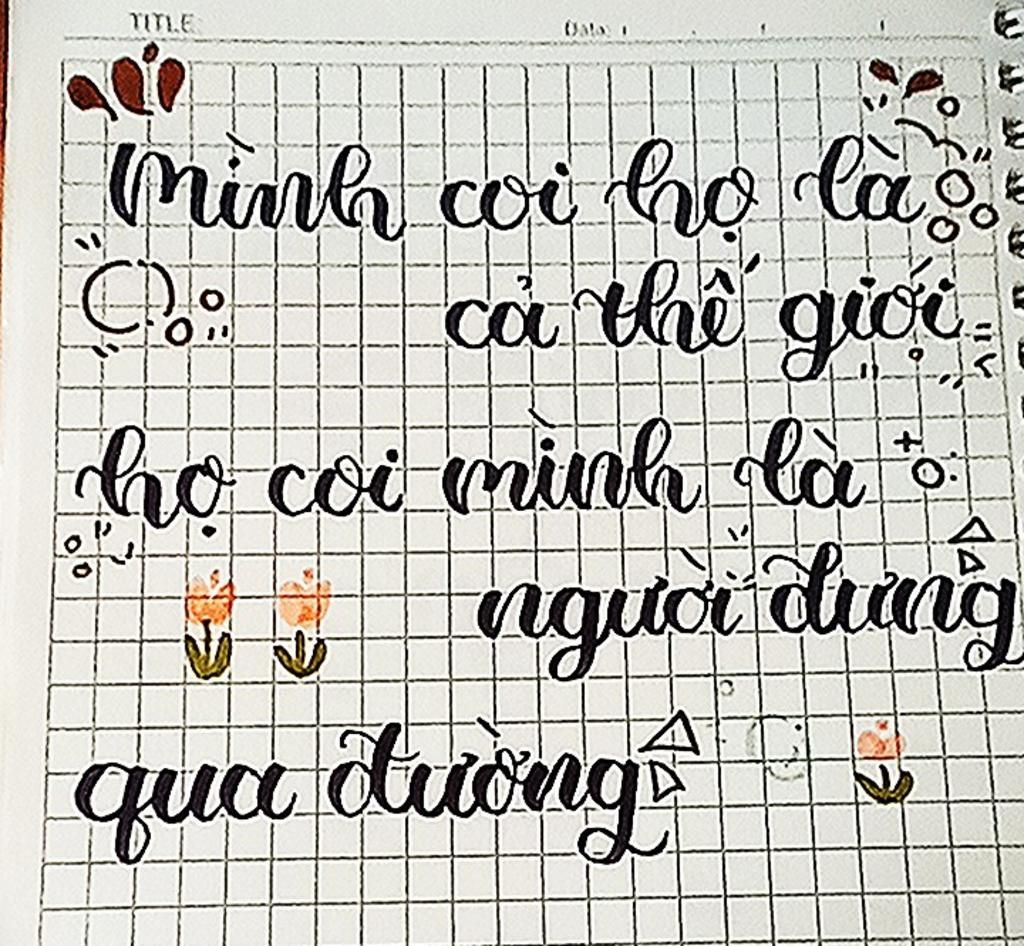 TITLE
Date:
Mình coi họ là
cả thế giới
họ coi mình là
người dưng
qua đường